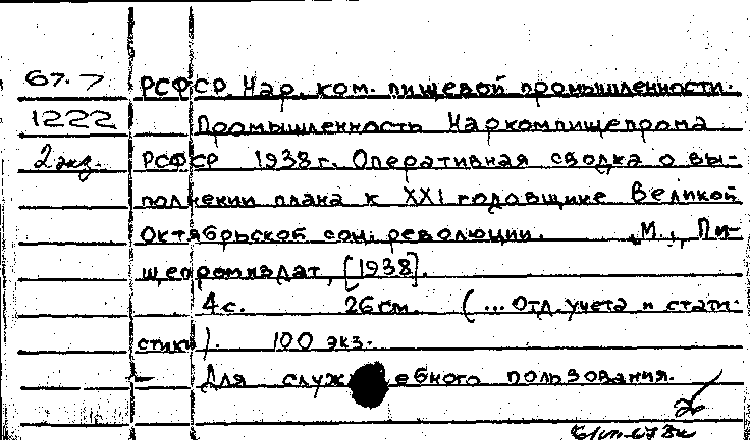 67.7 РСФСР. Нар. ком. пищевой промышленности.
1222 Промышленность Наркомпищепрома
2 экз. РСФСР 1938 г. Оперативная сводка о вы-
полнении плана к XXI годовщине Великой
Октябрьской соц. революции. М., Пи-
щепромиздат, [1938].
4 с. 26 см. (... Отд. учета и стати-
стики). 100 экз.
Для служебного пользования.